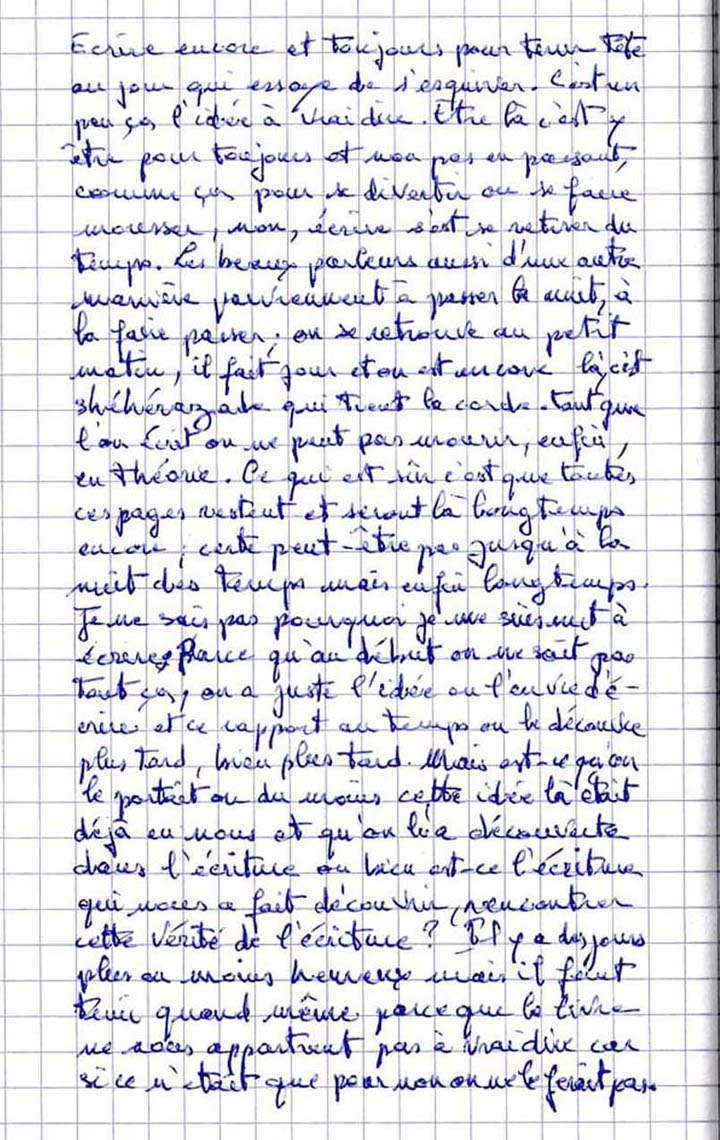 Ecrire encore et toujours pour tenir tête
au jour qui essaye de s'esquiver. C'est un
peu ça l'idée à vrai dire. Etre là c'est y
être pour toujours et non pas en passant,
comme ça pour se divertir ou se faire
mousser, non, écrire s'est se retirer du
temps. Les beaux parleurs aussi d'une autre
manière parviennent à passer la nuit, à
la faire passer ; on se retrouve au petit
matin, il fait jour et on est encore là, c'est
Shéhérazade qui tient la corde. Tant que
l'on écrit on ne peut pas mourir, enfin,
en théorie. Ce qui est sûr c'est que toutes
ces pages restent et seront là longtemps
encore ; certe peut-être pas jusqu'à la
nuit des temps mais enfin longtemps.
Je ne sais pas pourquoi je me suis mit à
écrire. Parce qu'au début on ne sait pas
tout ça, on a juste l'idée ou l'envie d'é-
crire et ce rapport au temps on le découvre
plus tard, bien plus tard. Mais est-ce qu'on
le portait ou du moins cette idée là était
déjà en nous et qu'on l'a découverte
dans l'écriture ou bien est-ce l'écriture
qui nous a fait découvrir, rencontrer
cette vérité de l'écriture ? Il y a des jours
plus ou moins heureux mais il faut
tenir quand même parce que le livre
ne nous appartient pas à vrai dire car
si ce n'était que pour on ne le ferait pas.